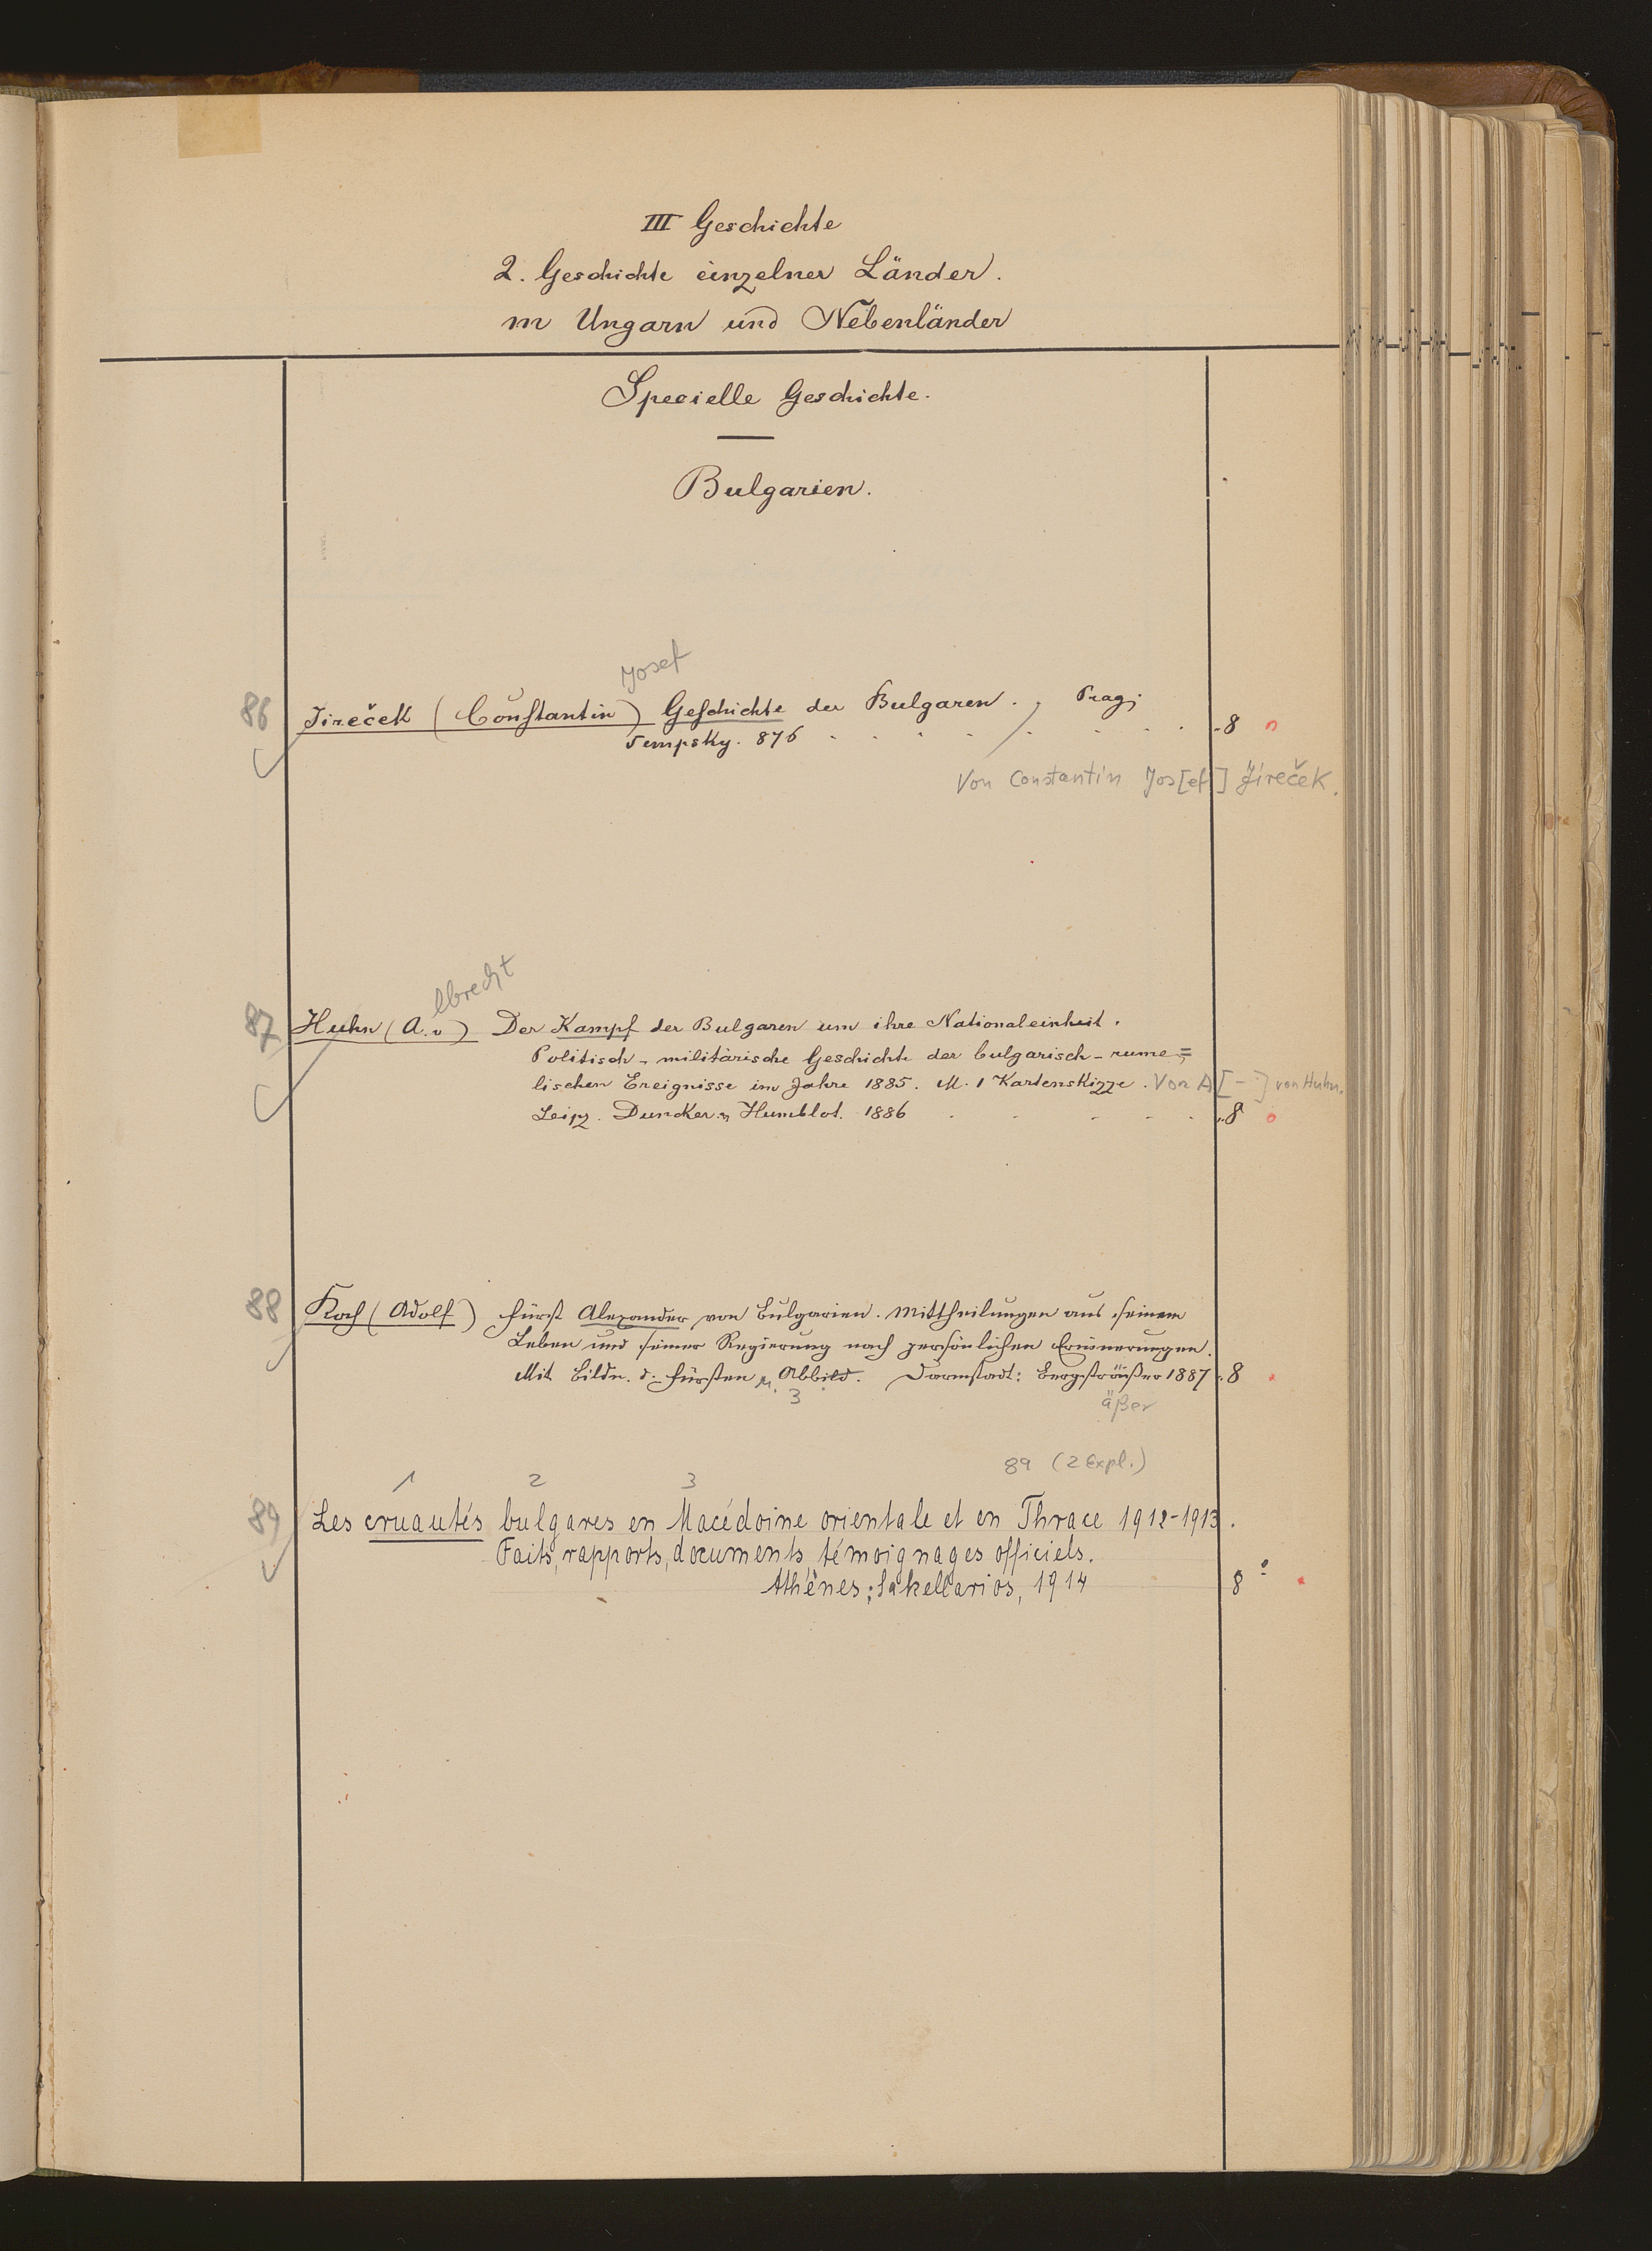 III Geschichte
2. Geschichte einzelner Länder.
m Ungarn und Nebenländer
Specielle Geschichte.
Bulgarien.
Josef
86 Jireček (Constantin) Geschichte der Bulgaren. , Prag;
Tempsky. 876 . . . . . . . . 8
Von Constantin Jos[ef] Jireček.
lbrecht
87 Huhn (A. v) Der Kampf der Bulgaren um ihre Nationaleinheit.
Politisch-militärische Geschichte der bulgarisch-rume=
lischen Ereignisse im Jahre 1885. M. 1 Kartenskizze. Von A[-] von Huhn.
Leipz. Duncker & Humblot. 1886 . . . . . 8
88 Koch (Adolf) Fürst Alexander von Bulgarien. Mittheilungen aus seinem
Leben und seiner Regierung nach persönlichen Erinnerungen.
Mit Bildn. d. Fürsten u. Abbild. Darmstadt: Bergsträußer 1887. 8
3 äßer
89 (2 Expl.)
1 2 3
89 Les cruautés bulgares en Macédoine orientale et en Thrace 1912-1913.
Faits, rapports, documents témoignages officiels.
Athènes; Sakellarios, 1914 8°